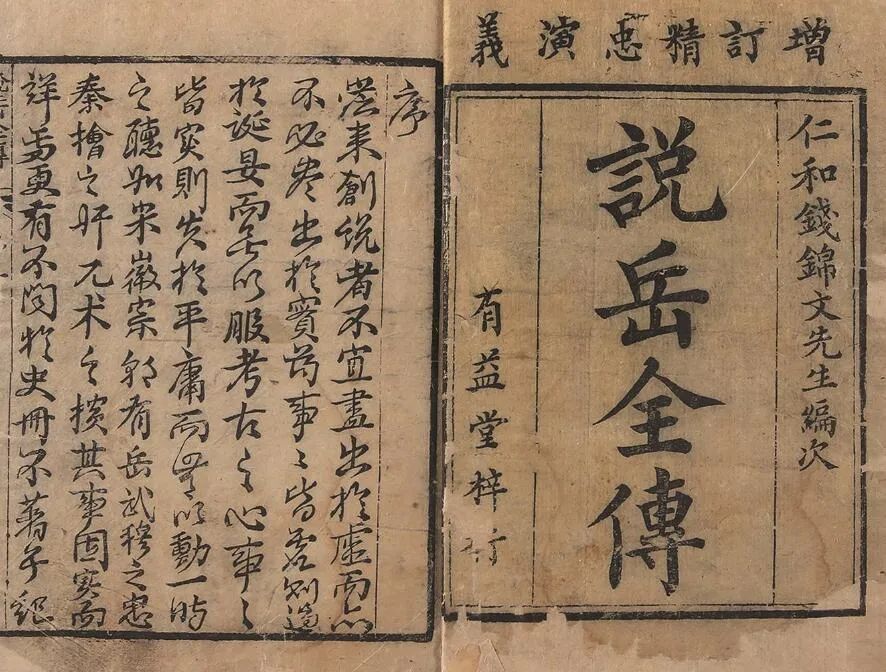 增訂精忠演義
仁和錢錦文先生編次
說岳全傳
有益堂梓行
序
從来創說者不宜盡出於虛而亦
不必盡出於實茍事〻皆虛則過
於誕妄而無以服考古之心事〻
皆實則失於平庸而無以動一時
之聽如宋徽宗朝有岳武穆之忠
秦檜之奸兀术之橫其事固實而
詳焉更有不聞於史冊不著于紀